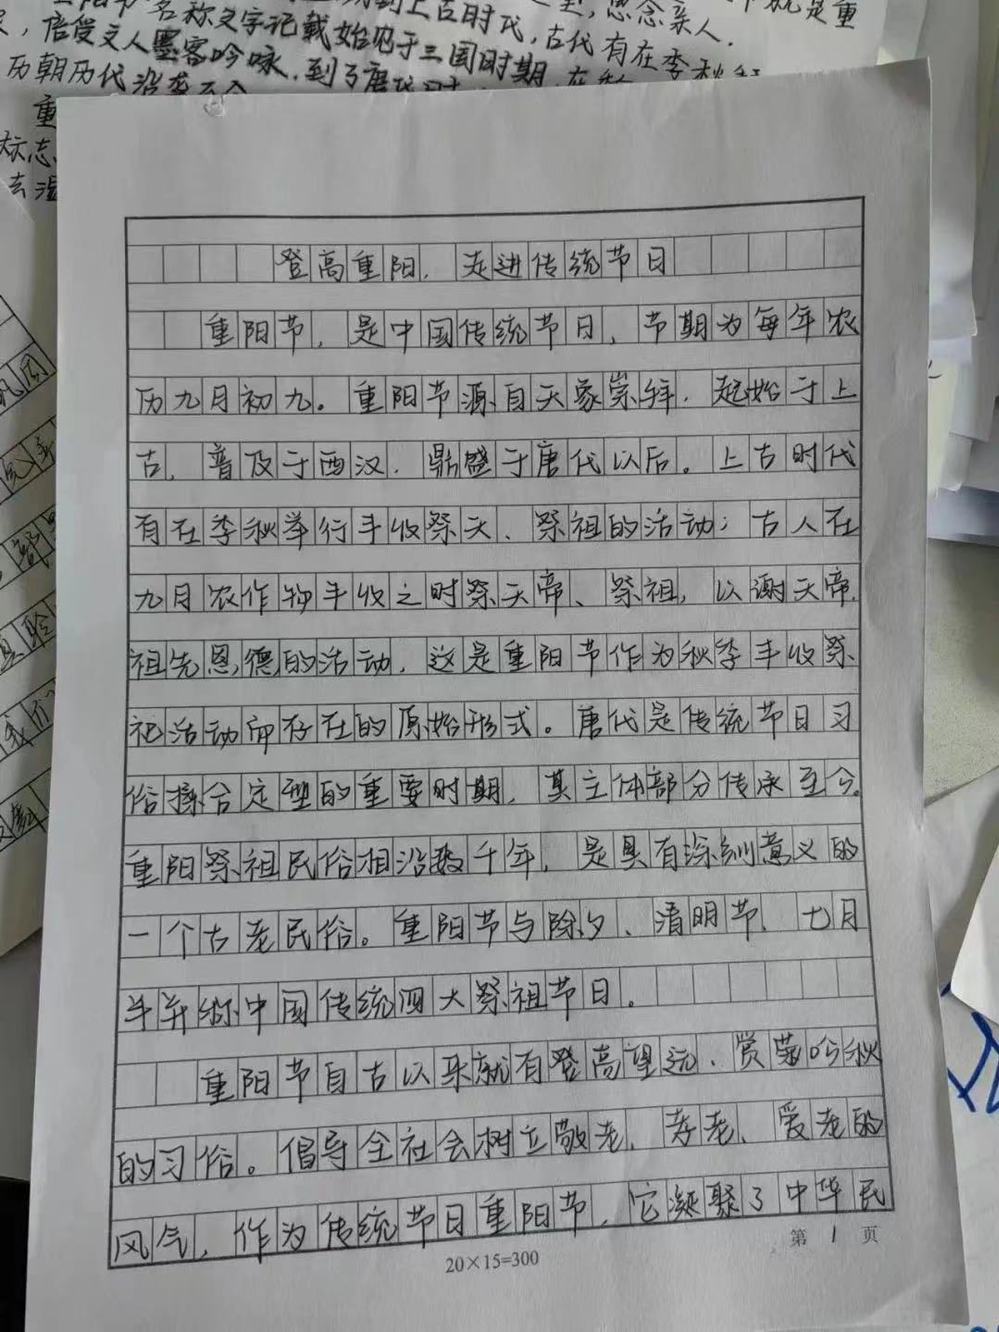 名称文字记载始见于三国时期
上古时代,古代有在季秋
思念亲人.
就是重
文人墨客吟咏.到了唐
历朝历代
重
标志
登高重阳,走进传统节日
重阳节,是中国传统节日,节期为每年农
历九月初九。重阳节源自天象崇拜,起始于上
古,普及于西汉,鼎盛于唐代以后。上古时代
有在季秋举行丰收祭天、祭祖的活动;古人在
九月农作物丰收之时祭天帝、祭祖,以谢天帝、
祖先恩德的活动,这是重阳节作为秋季丰收祭
祀活动而存在的原始形式。唐代是传统节日习
俗揉合定型的重要时期,其主体部分传承至今。
重阳祭祖民俗相沿数千年,是具有深刻意义的
一个古老民俗。重阳节与除夕、清明节、七月
半并称中国传统四大祭祖节日。
重阳节自古以来就有登高望远、赏菊吟秋
的习俗。倡导全社会树立敬老、孝老、爱老的
风气,作为传统节日重阳节,它凝聚了中华民
20×15=300
第 1 页